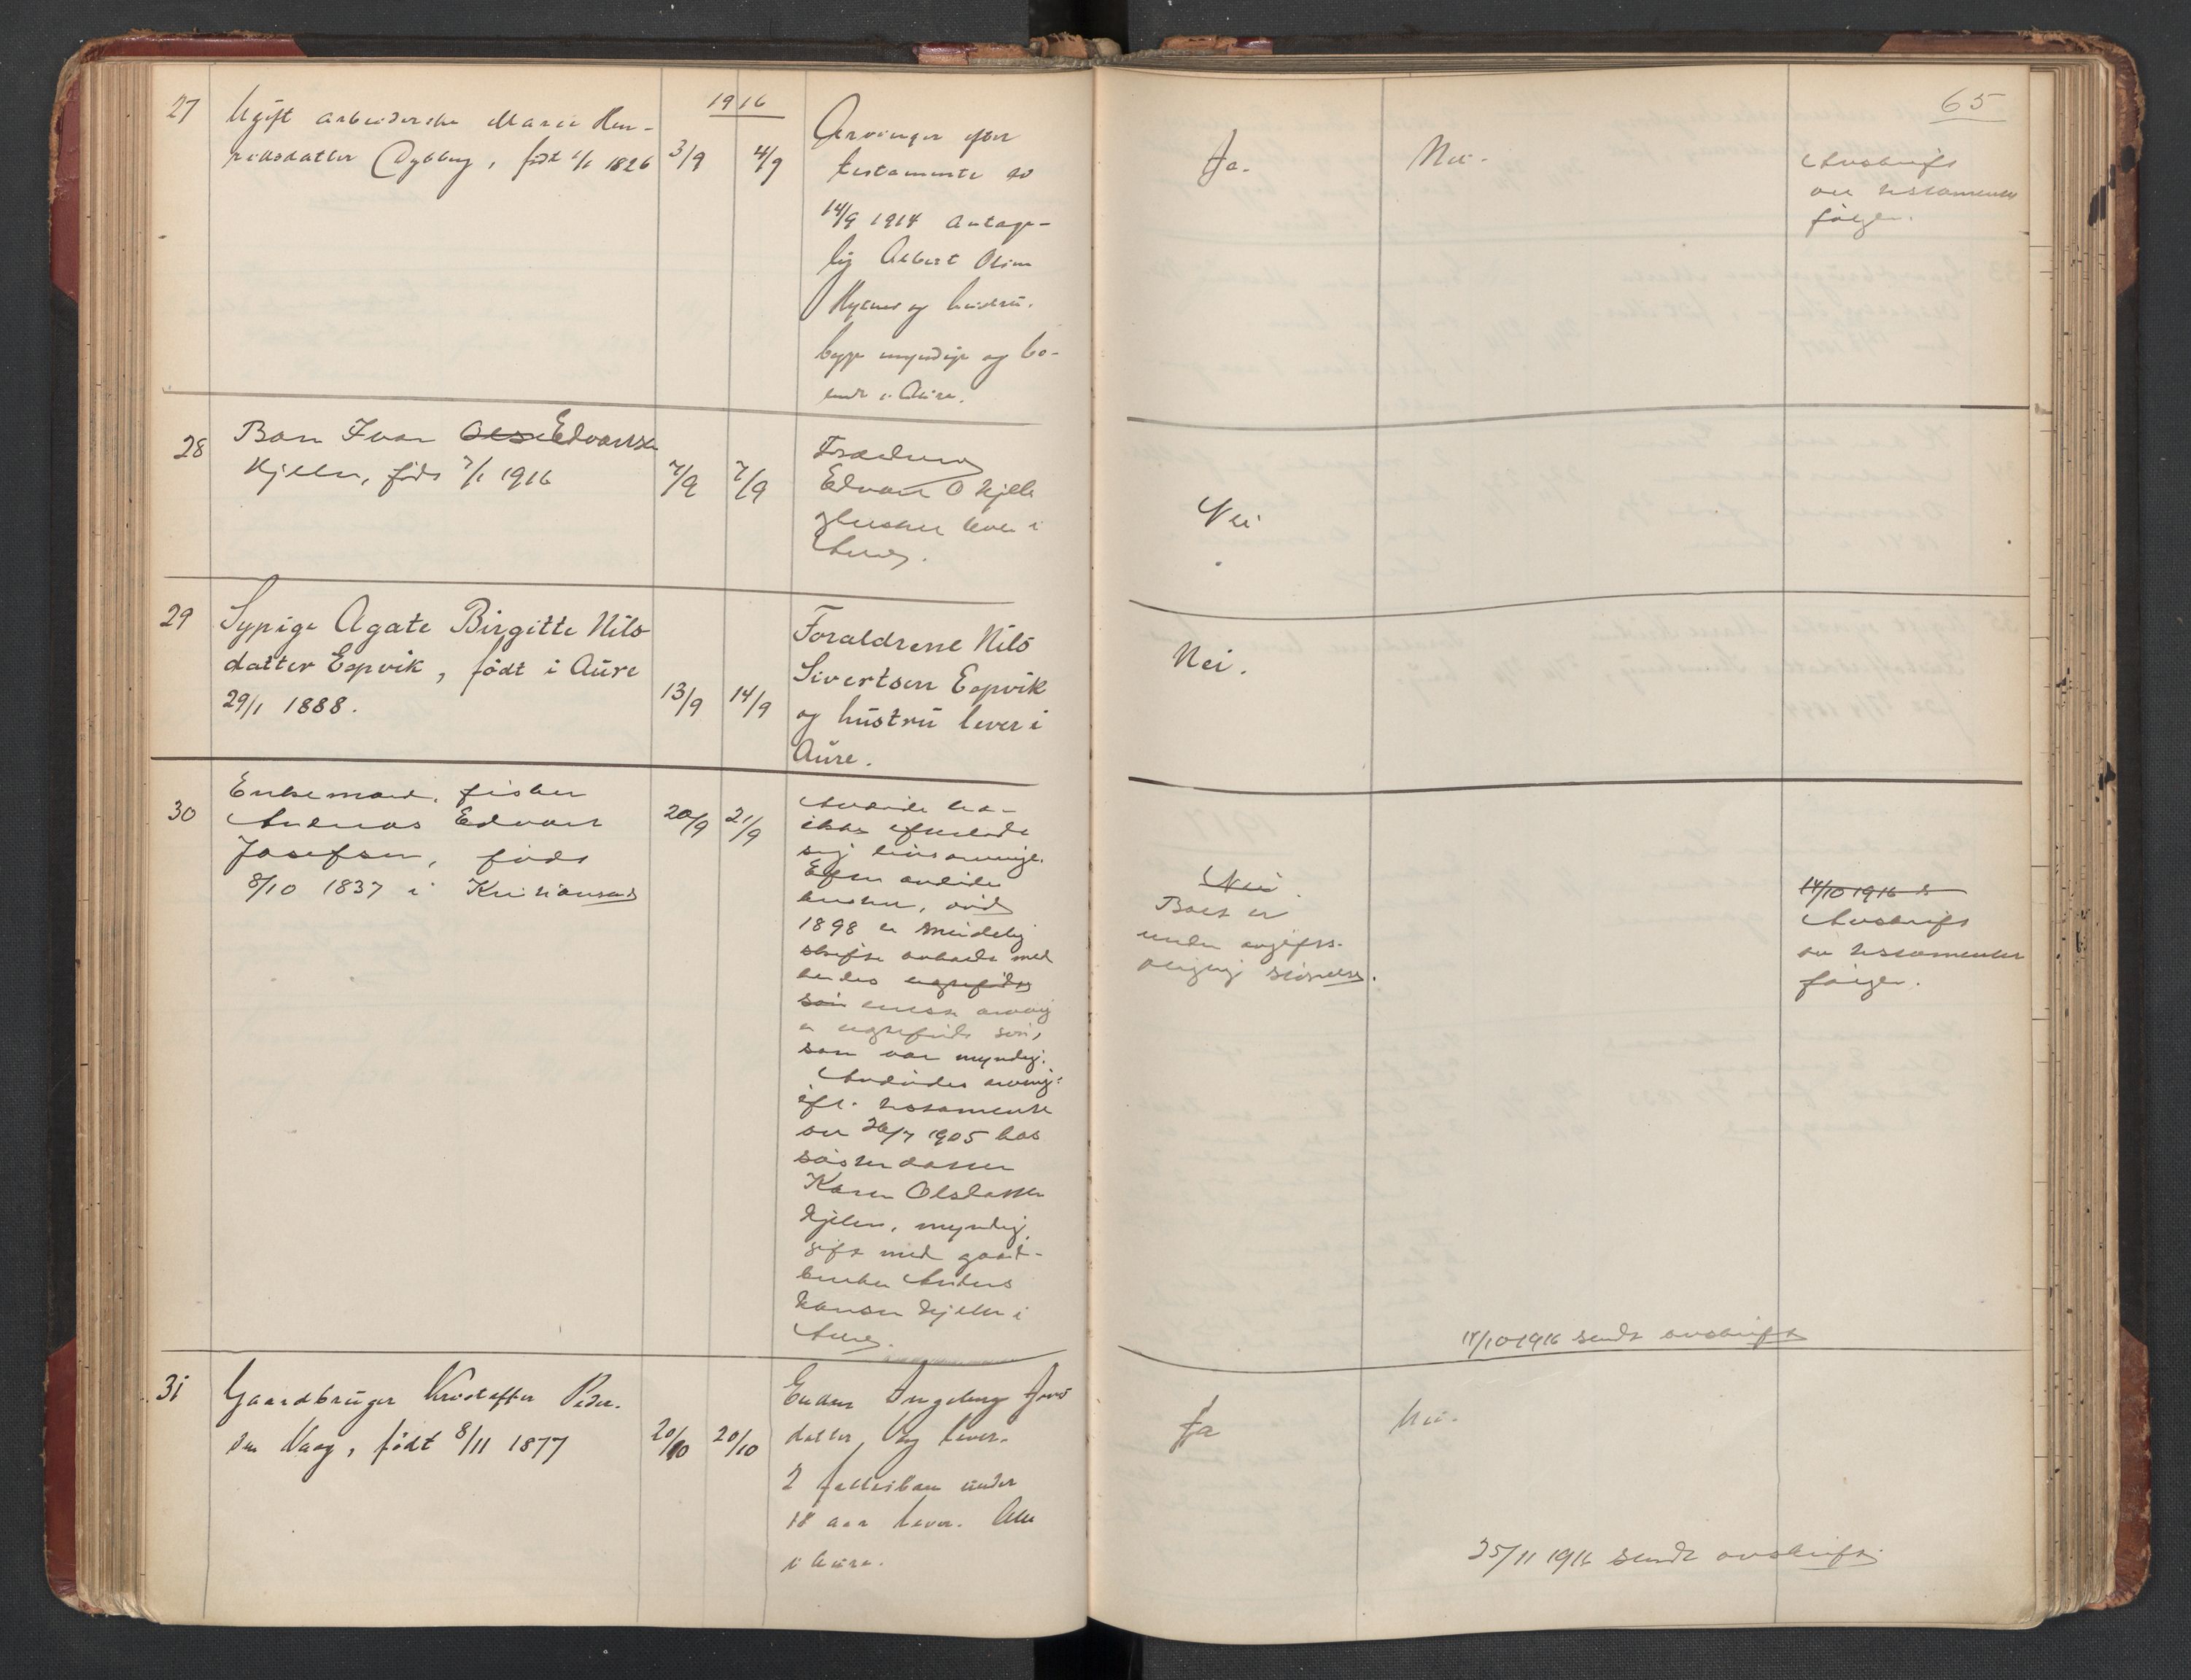 65
1916
27
Ugift arbeiderske Marie Hen-
riksdatter Dybberg, født 1/1 1826
3/9
4/9
Arvinger efter
testamente av
14/9 1914 antage-
lig Albert Olsen
og hustru.
begge myndige og bo-
ende i Aure.
Ja.
Nei.
Avskrift
av testamente
følger.
28
Barn Ivar Olsen Edvardsen
Kjelen, født 7/1 1916
7/9
7/9
Forældrene
Edvard O Kjelen
og hustru lever i
Aure.
Nei
29
Sypige Agate Birgitte Nils
datter Espvik, født i Aure
29/1 1888.
13/9
14/9
Foraldrene Nils
Sivertsen Espvik
og hustru lever i
Aure.
Nei.
30
Enkemand, fisker
Andreas Edvard
Josefsen, født
8/10 1837 i Kristiansund
20/9
21/9
Avdøde har
ikke efterladt
sig livsarvinger.
Efter avdøde
hustru, død
1898 er mindelig
skifte avholdt med
hendes egtefødte
søn eneste arving
en egtefødt søn,
som var myndig.
Avdødes arving
efter testamente
av 26/7 1905 hos
søster datter
Karen Olsdatter
Kjelen, myndig,
gift med gaard-
bruker Anders
Hansen Kjelen i
Aure.
Nei.
Boet er
under avgifts-
pligtig størrelse.
14/10 1916 s
Avskrift
av testamentet
følger.
14/10 1916 sendt avskrift
31
Gaardbruger Kristoffer Peder-
sen Vaag, født 8/11 1877
20/10
20/10
Enken Ingeborg Jons
datter Vaag lever.
2 fællesbarn under
18 aar lever. Alle
i Aure.
Ja
Nei.
25/11 1916 sendt avskrift.